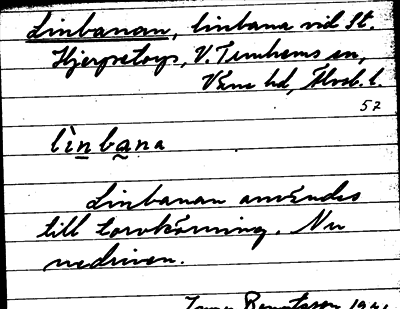 Linbanan, linbana vid St.
Hjerpetorp, V. Tunhems sn,
Väne hd, Älvsb. l.
57
lìnbana
Linbanan användes
till torvkörning. Nu
nedriven.